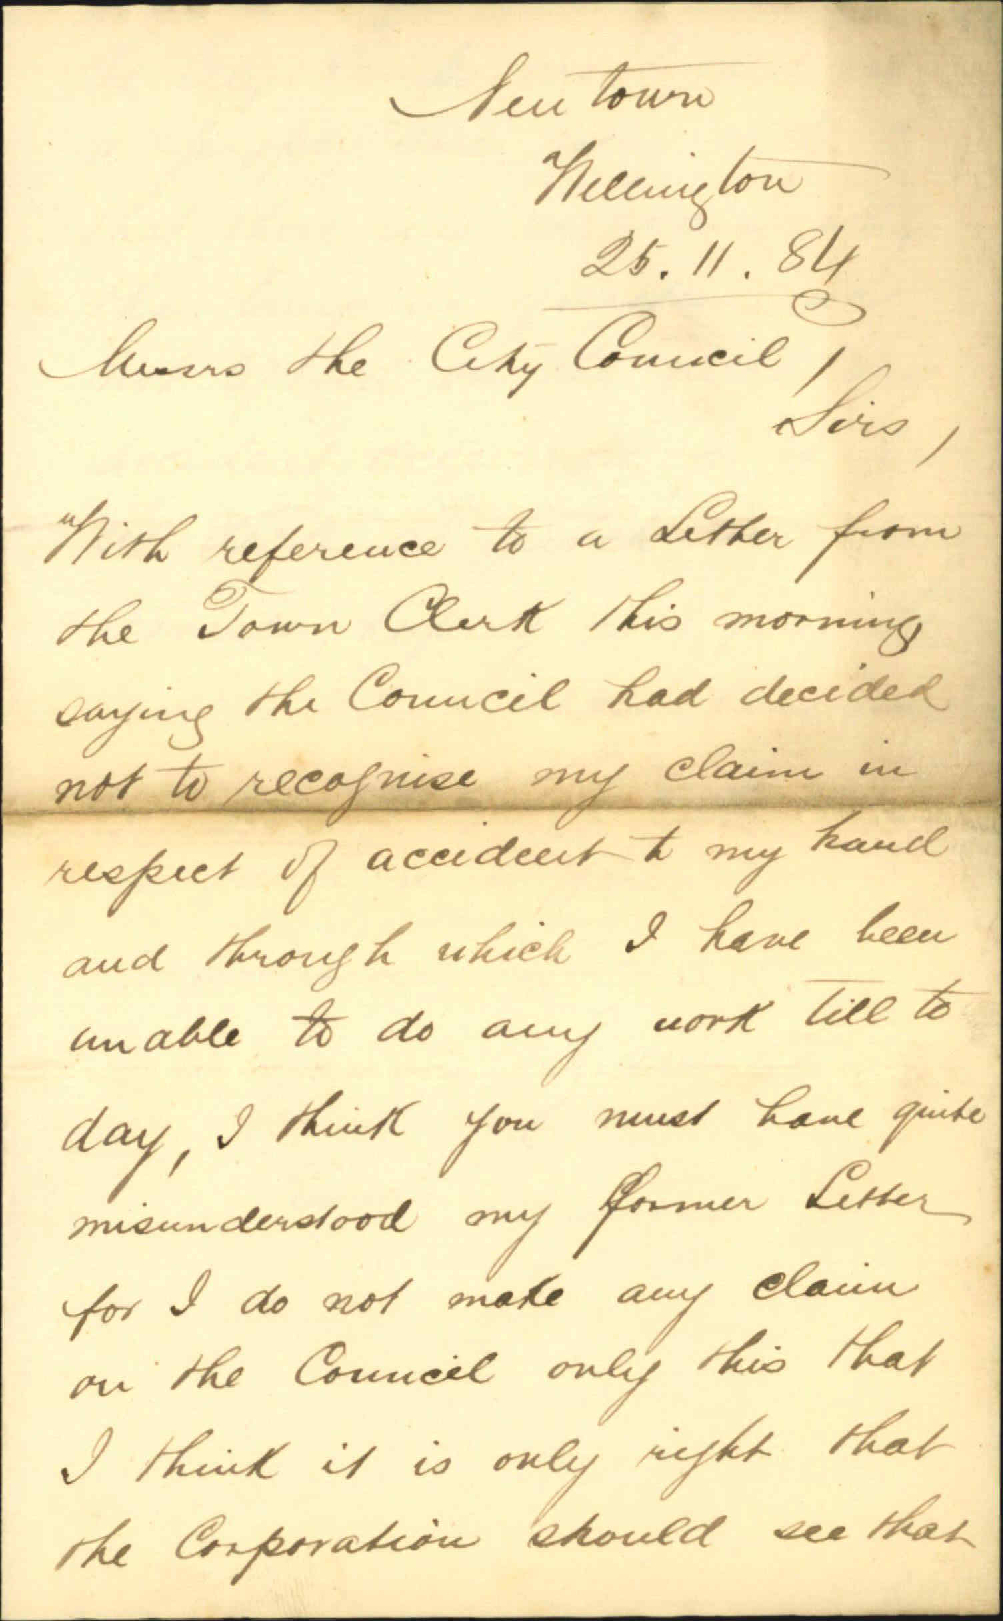 Newtown
Wellington
25.11.84
Messrs the City Council,
Sirs,
With reference to a Letter from
the Town Clerk this morning
saying the Council had decided
not to recognise my claim in
respect of accident to my hand
and through which I have been
unable to do any work till to
day, I think you must have quite
misunderstood my former Letter
for I do not make any claim
on the Council only this that
I think it is only right that
the Corporation should see that